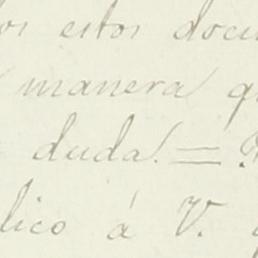 os estos docu
manera q
duda. =
lico á V.